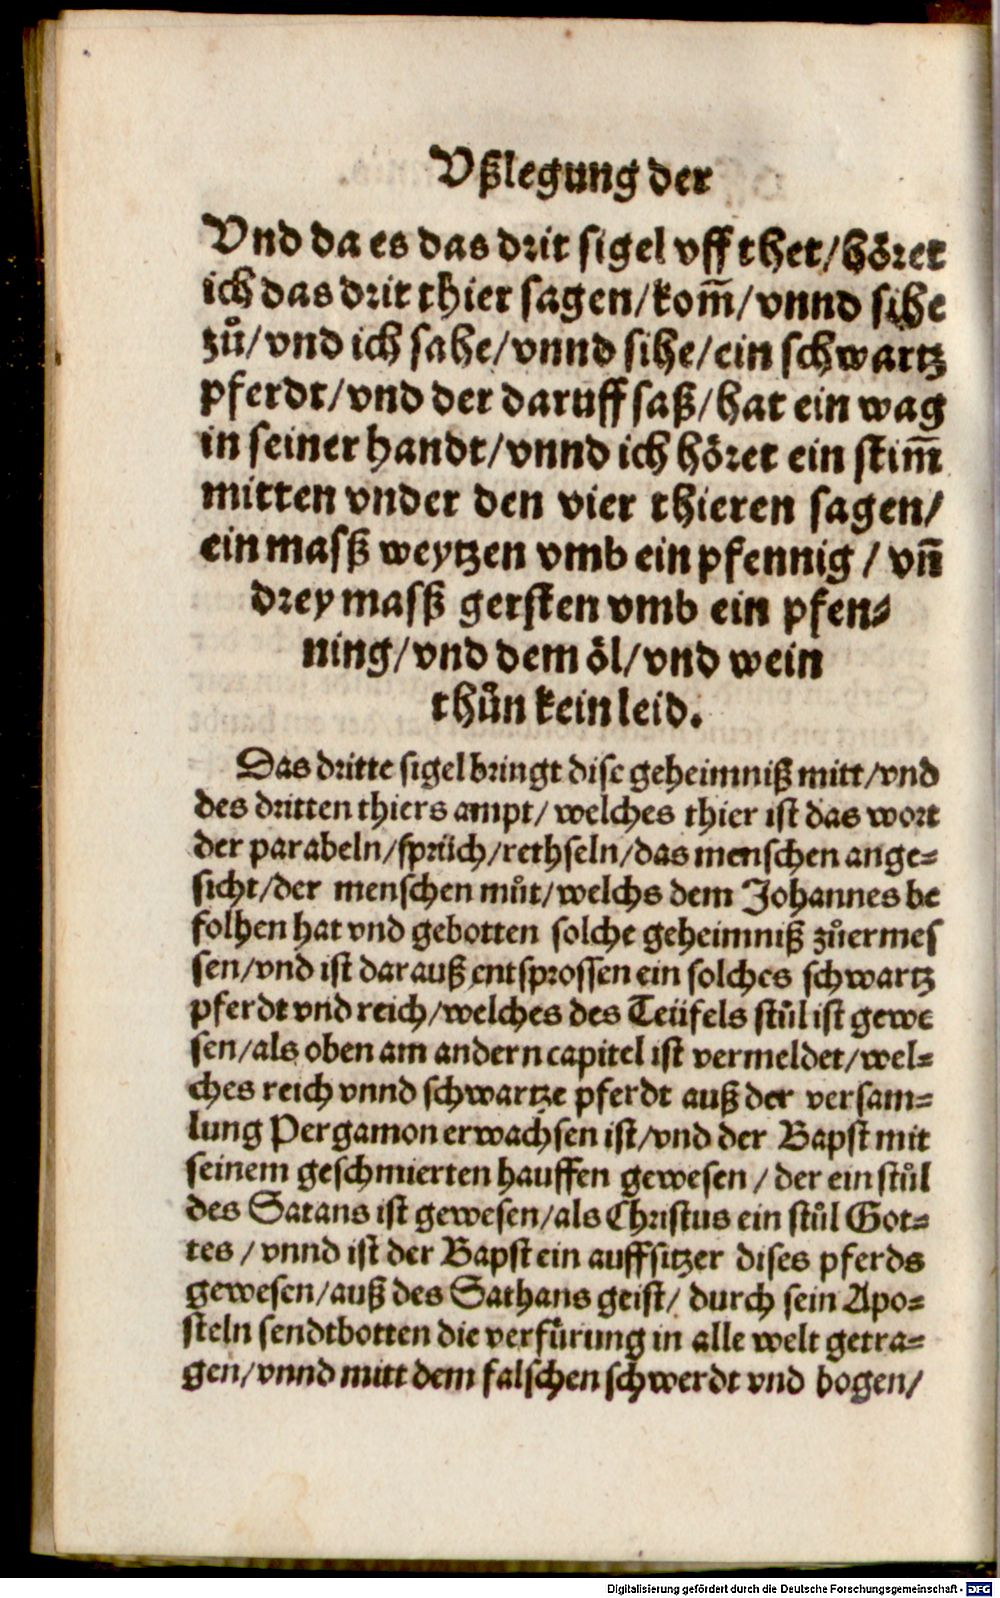 Vßlegung der
Vnd da es das drit sigel vff thet/höret
ich das drit thier sagen/kom̄/vnnd sihe
zů/vnd ich sahe/vnnd sihe/ein schwartz
pferdt/vnd der daruff saß/hat ein wag
in seiner handt/vnnd ich höret ein stim̄
mitten vnder den vier thieren sagen/
ein masß weytzen vmb ein pfennig/vn̄
drey masß gersten vmb ein pfen⸗
ning/vnd dem öl/vnd wein
thůn kein leid.
Das dritte sigel bringt dise geheimniß mitt/vnd
des dritten thiers ampt/welches thier ist das wort
der parabeln/sprüch/rethseln/das menschen ange⸗
sicht/der menschen můt/welchs dem Johannes be
folhen hat vnd gebotten solche geheimniß zůermes
sen/vnd ist darauß entsprossen ein solches schwartz
pferdt vnd reich/welches des Teüfels stůl ist gewe
sen/als oben am andern capitel ist vermeldet/wel⸗
ches reich vnnd schwartze pferdt auß der versam⸗
lung Pergamon erwachsen ist/vnd der Bapst mit
seinem geschmierten hauffen gewesen/der ein stůl
des Satans ist gewesen/als Christus ein stůl Got⸗
tes/vnnd ist der Bapst ein auffsitzer dises pferds
gewesen/auß des Sathans geist/durch sein Apo⸗
steln sendtbotten die verfůrung in alle welt getra⸗
gen/vnnd mitt dem falschen schwerdt vnd bogen/
Digitalisierung gefördert durch die Deutsche Forschungsgemeinschaft - DFG